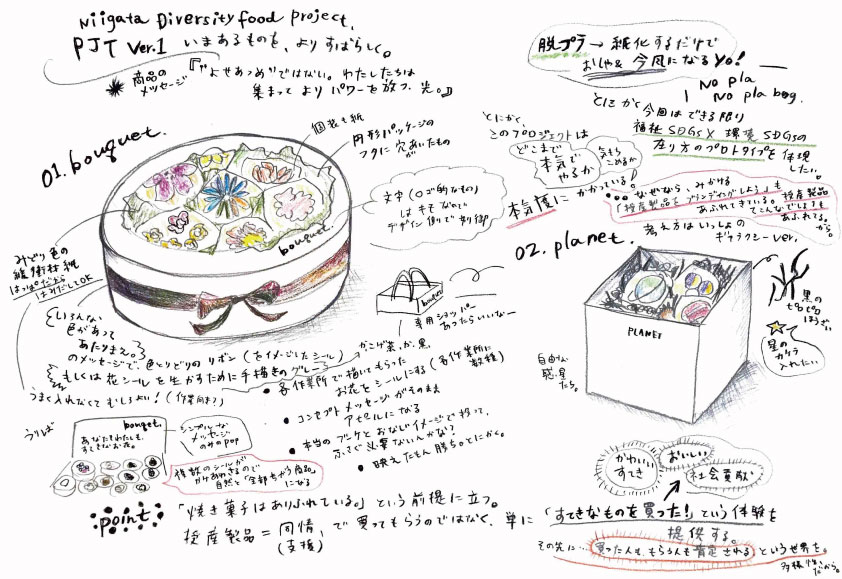 Niigata Diversity food project.
PJT Ver.1 いまあるものを、よりすばらしく。
商品のメッセージ
『"よせあつめ"ではない。わたしたちは
集まって よりパワーを放つ、光。』
脱プラ → 紙化するだけで
おしゃ& 今風になるyo!
No pla
No pla bag.
とにかく 今回はできる限り
福祉SDGs × 環境SDGsの
在り方のプロトタイプを体現
したい。
とにかく、
このプロジェクトは
どこまで
本気で
やるか
気もち
こめるか
本気度にかかっている。
なぜなら、みかける
「授産製品をブランディングしよう」も
あふれてきている。授産製品
てこんなでしょ!も
あふれてる。
から。
01. bouquet.
個装も紙
円形パッケージの
フタに穴あいたもの
が
文字(ロゴ的なもの)
は
なので
デザイン側で制御
bouquet.
みどり色の
緩衝材 紙
はっぱだから
はみだしてOK
いろんな
色があって
あたりまえ。
のメッセージで、色とりどりの リボン (をイメージしたシール)
もしくは 花シールを生かすために手描きのグレー
かこげ茶、か、黒
うまく入れなくてもしよい! (作業向き?)
bouquet
専用ショッパー
あったらいいなー
• 各作業所で描いてもらった
お花をシールにする (各作業所に
数種)
• コンセプトメッセージがそのまま
アピールになる
• 本当のブーケとおなじイメージで作って、
ふさぐ必要ないんかな?
• 映えたもん勝ち。とにかく。
うりば
bouquet.
あなたもわたしも、
すてきなお花。
シンプルな
メッセージ
のみのpop
複数のシールが
かけあわさるので
自然と「全部ちがう商品」
になる
02. planet.
考え方はいっしょの
ギャラクシーver.
PLANET
黒の
もじゃもじゃ
星の
カケラ
入れたい
自由な
惑星
たち。
かわいい
すてき
おいしい
社会貢献
point
「焼き菓子はありふれている。」という前提に立つ。
授産製品 = 同情、で買ってもらうのではなく、単に「すてきなものを買った!」という体験を
(支援)
提供する。
その先に… 買った人も、もらう人も肯定される という世界を。
多様性
だから。